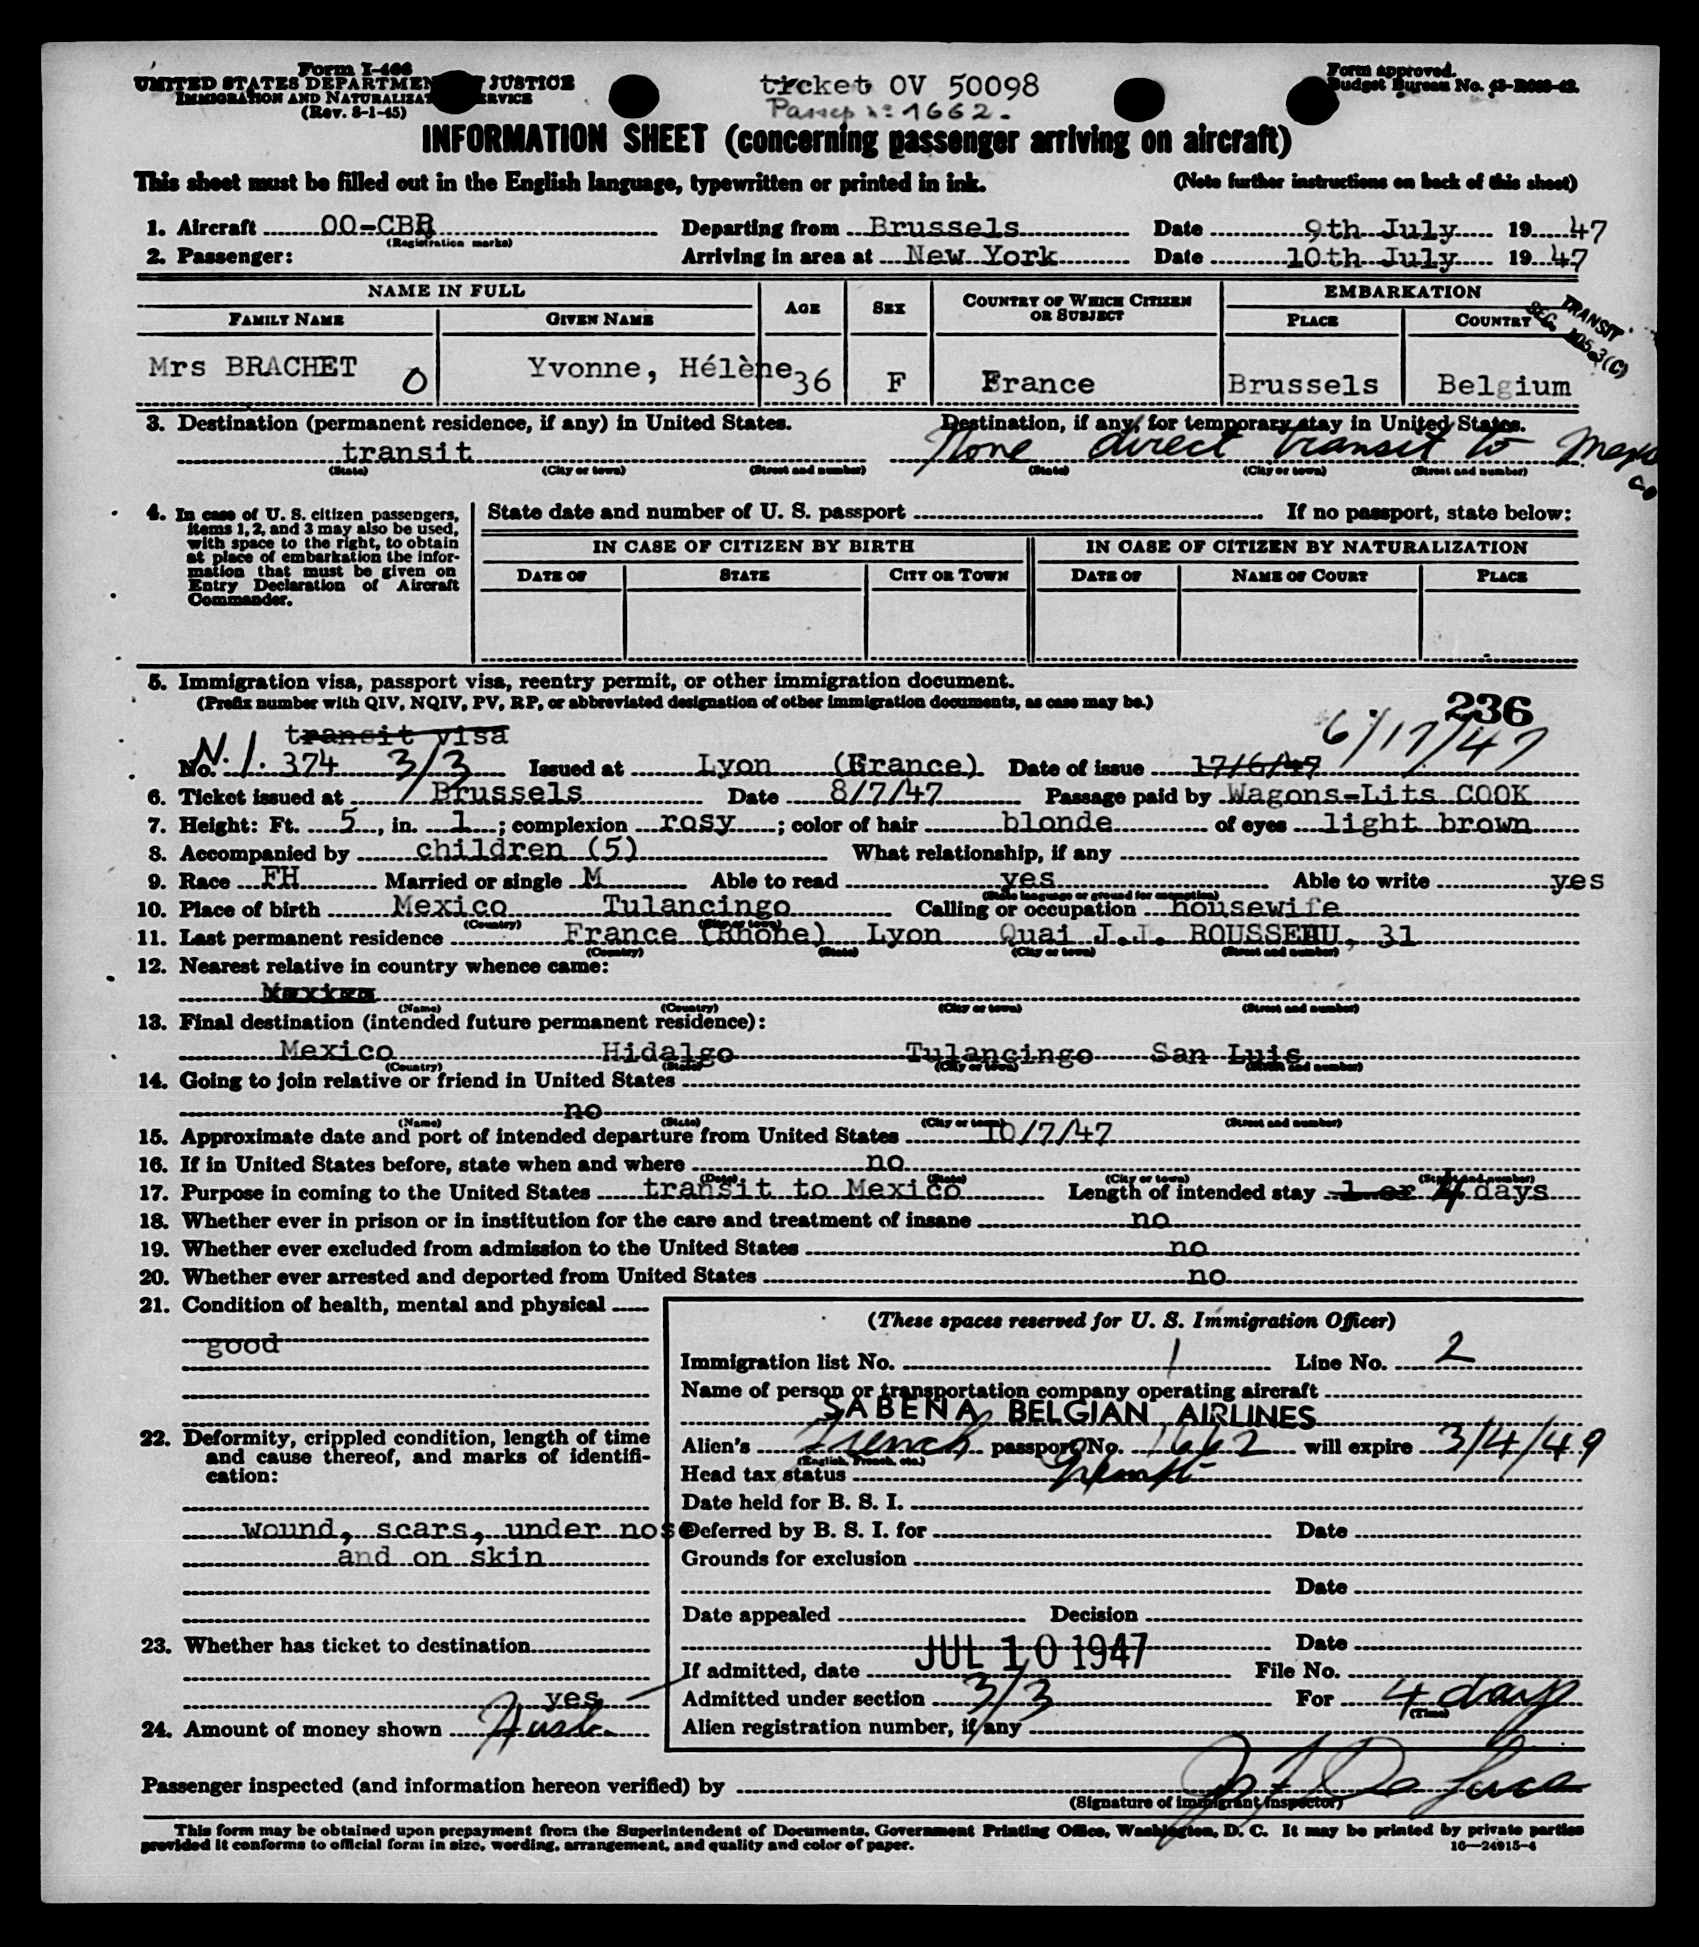 Form I-466
UNITED STATES DEPARTMENT OF JUSTICE
IMMIGRATION AND NATURALIZATION SERVICE
(Rev. 8-1-45)
ticket OV 50098
Passep nº 1662.
Form approved.
Budget Bureau No.
INFORMATION SHEET (concerning passenger arriving on aircraft)
This sheet must be filled out in the English language, typewritten or printed in ink. (Note further instructions on back of this sheet)
1. Aircraft OO-CBR Departing from Brussels Date 9th July 19 47
(Registration marks)
2. Passenger: Arriving in area at New York Date 10th July 19 47
NAME IN FULL AGE SEX COUNTRY OF WHICH CITIZEN OR SUBJECT EMBARKATION
FAMILY NAME GIVEN NAME PLACE COUNTRY
TRANSIT
SEC. 105.3(C)
Mrs BRACHET 0 Yvonne, Hélène 36 F France Brussels Belgium
3. Destination (permanent residence, if any) in United States. Destination, if any, for temporary stay in United States.
transit None direct transit to Mexico
(State) (City or town) (Street and number) (State) (City or town) (Street and number)
4. In case of U. S. citizen passengers, items 1, 2, and 3 may also be used, with space to the right, to obtain at place of embarkation the information that must be given on Entry Declaration of Aircraft Commander.
State date and number of U. S. passport If no passport, state below:
IN CASE OF CITIZEN BY BIRTH IN CASE OF CITIZEN BY NATURALIZATION
DATE OF STATE CITY OR TOWN DATE OF NAME OF COURT PLACE
5. Immigration visa, passport visa, reentry permit, or other immigration document.
(Prefix number with QIV, NQIV, PV, RP, or abbreviated designation of other immigration documents, as case may be.)
236
transit visa 6/17/47
No. N.I. 374 3/3 Issued at Lyon (France) Date of issue 17/6/47
6. Ticket issued at Brussels Date 8/7/47 Passage paid by Wagons-Lits COOK
7. Height: Ft. 5, in. 1; complexion rosy; color of hair blonde of eyes light brown
8. Accompanied by children (5) What relationship, if any
9. Race FH Married or single M Able to read yes Able to write yes
(State language or ground for exemption)
10. Place of birth Mexico Tulancingo Calling or occupation housewife
(Country) (City or town)
11. Last permanent residence France (Rhône) Lyon Quai J.J. ROUSSEAU, 31
(Country) (State) (City or town) (Street and number)
12. Nearest relative in country whence came:
Mexico
(Name) (Country) (City or town) (Street and number)
13. Final destination (intended future permanent residence):
Mexico Hidalgo Tulancingo San Luis
(Country) (State) (City or town) (Street and number)
14. Going to join relative or friend in United States
no
(Name) (State) (City or town) (Street and number)
15. Approximate date and port of intended departure from United States 10/7/47
16. If in United States before, state when and where no
(Date) (State) (City or town) (Street and number)
17. Purpose in coming to the United States transit to Mexico Length of intended stay 1 or 4 days
18. Whether ever in prison or in institution for the care and treatment of insane no
19. Whether ever excluded from admission to the United States no
20. Whether ever arrested and deported from United States no
21. Condition of health, mental and physical
good
22. Deformity, crippled condition, length of time and cause thereof, and marks of identification:
wound, scars, under nose
and on skin
23. Whether has ticket to destination
yes
24. Amount of money shown Husb.
(These spaces reserved for U. S. Immigration Officer)
Immigration list No. 1 Line No. 2
Name of person or transportation company operating aircraft
SABENA BELGIAN AIRLINES
Alien's French passport No. 1662 will expire 3/4/49
(English, French, etc.)
Head tax status Exempt
Date held for B. S. I.
Deferred by B. S. I. for Date
Grounds for exclusion
Date
Date appealed Decision
Date
If admitted, date JUL 10 1947 File No.
Admitted under section 3/3 For 4 days
(Time)
Alien registration number, if any
Passenger inspected (and information hereon verified) by
(Signature of immigrant inspector)
This form may be obtained upon prepayment from the Superintendent of Documents, Government Printing Office, Washington, D. C. It may be printed by private parties
provided it conforms to official form in size, wording, arrangement, and quality and color of paper. 16—24915-4